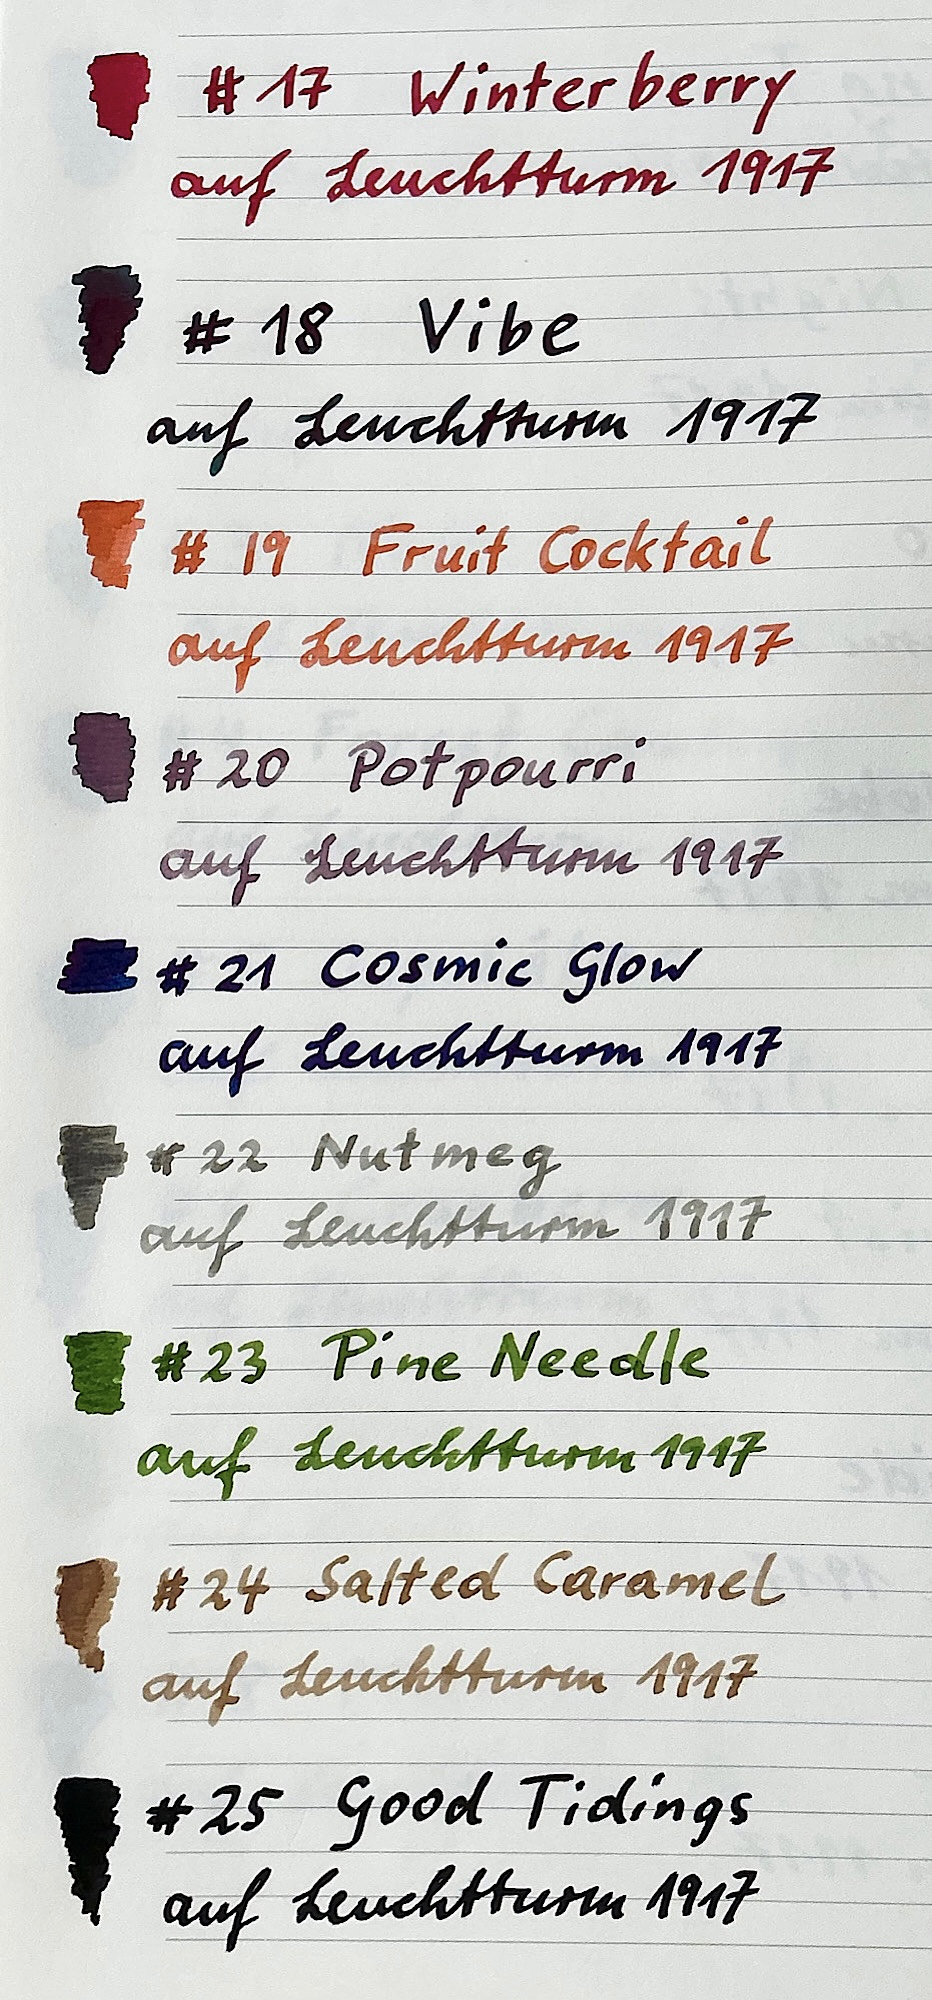 # 17 Winterberry
auf Leuchtturm 1917
# 18 Vibe
auf Leuchtturm 1917
# 19 Fruit Cocktail
auf Leuchtturm 1917
# 20 Potpourri
auf Leuchtturm 1917
# 21 Cosmic Glow
auf Leuchtturm 1917
# 22 Nutmeg
auf Leuchtturm 1917
#23 Pine Needle
auf Leuchtturm 1917
#24 Salted Caramel
auf Leuchtturm 1917
#25 Good Tidings
auf Leuchtturm 1917